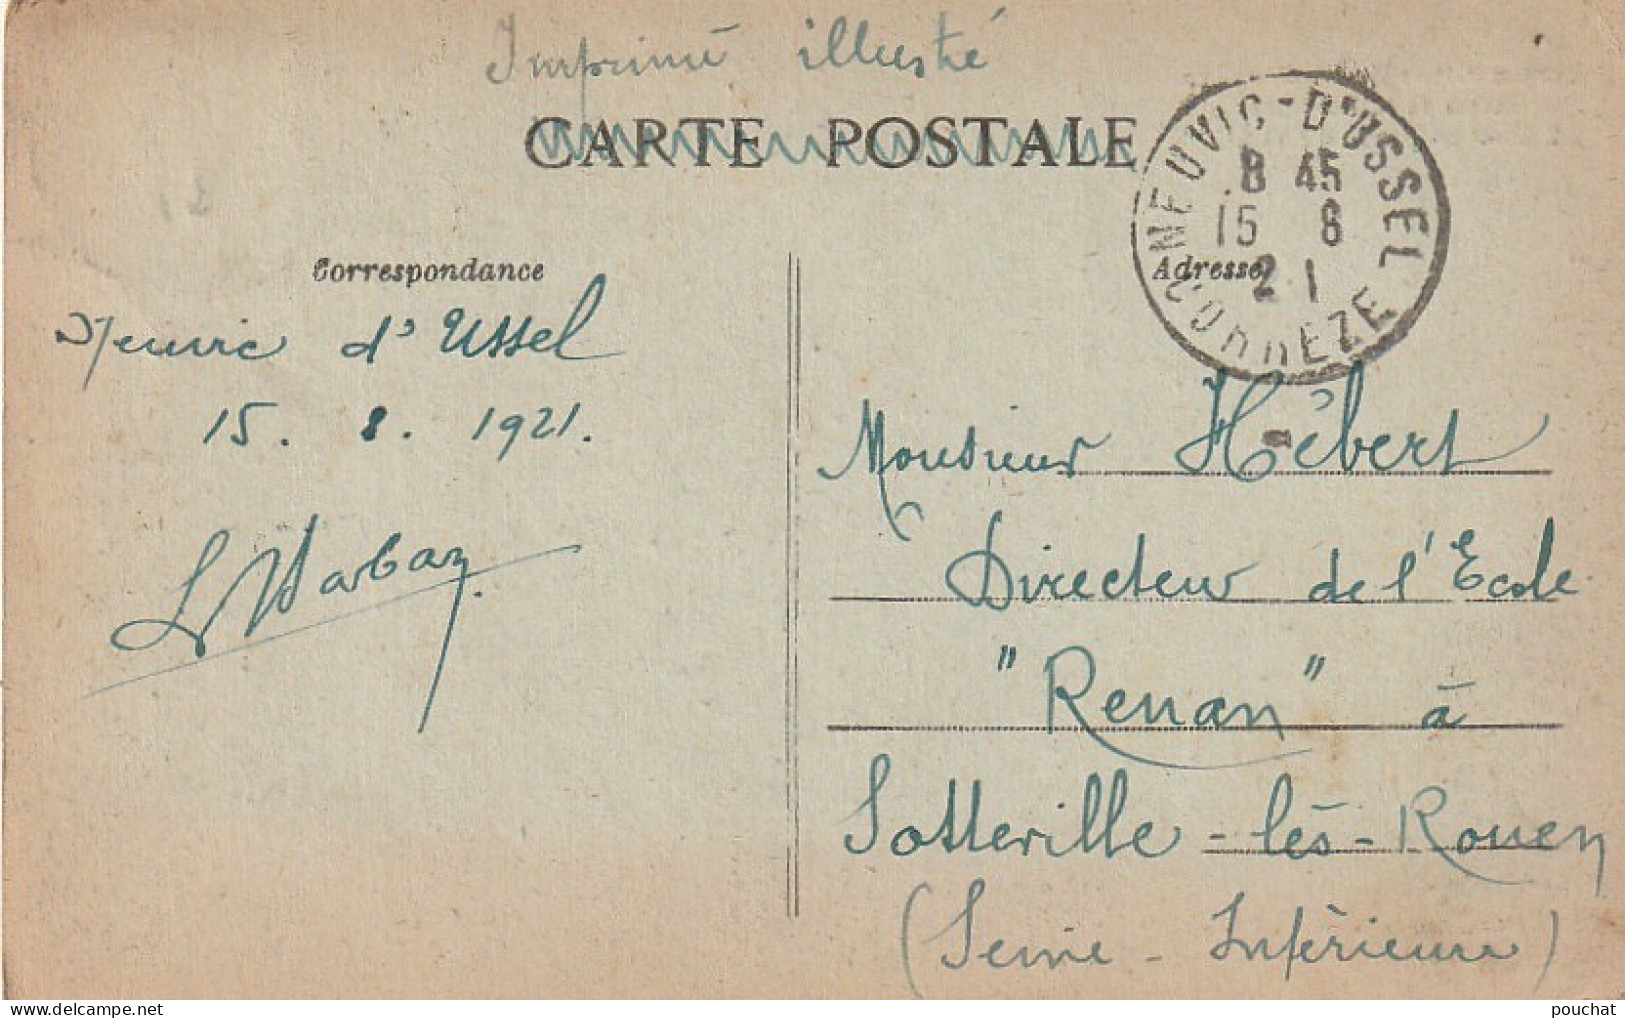 Imprimé illustré
CARTE POSTALE
NEUVIC-D'USSEL
8 45
15 8
21
CORREZE
Correspondance
Adresse
Neuvic d'Ussel
15. 8. 1921.
Monsieur Hébert
Directeur de l'Ecole
"Renan" à
Sotteville-lès-Rouen
(Seine-Inférieure)
pouchat